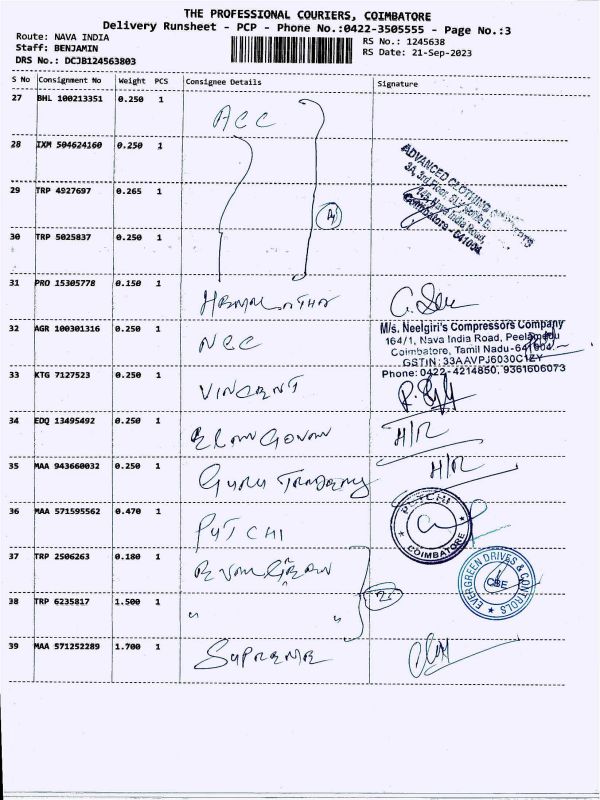 THE PROFESSIONAL COURIERS, COIMBATORE
Delivery Runsheet - PCP - Phone No.:0422-3505555 - Page No.:3
Route: NAVA INDIA
Staff: BENJAMIN
DRS No.: DCJB124563803
RS No.: 1245638
RS Date: 21-Sep-2023
S No Consignment No Weight PCS Consignee Details Signature
27 BHL 100213351 0.250 1 ACC
28 IXM 504624160 0.250 1
ADVANCED CLOTHING
3A, 3rd Floor,
29 TRP 4927697 0.265 1 4
145, Nava India Road,
Coimbatore - 641004.
30 TRP 5025837 0.250 1
31 PRO 15305778 0.150 1
32 AGR 100301316 0.250 1 NCC
M/s. Neelgiri's Compressors Company
164/1, Nava India Road, Peelamedu
Coimbatore, Tamil Nadu-641004.
GSTIN: 33AAVPJ6030C1ZY
Phone: 0422-4214850, 9361606073
33 KTG 7127523 0.250 1 VINCENT
34 EDQ 13495492 0.250 1 ELANGOVAN H/R
35 MAA 943660032 0.250 1 GURU TRADERS H/R
36 MAA 571595562 0.470 1 PUTCHI
PUTCHI
COIMBATORE
37 TRP 2506263 0.180 1
EVERGREEN DRIVES & CONTROLS
CBE
38 TRP 6235817 1.500 1 " " 2
39 MAA 571252289 1.700 1 SUPREME